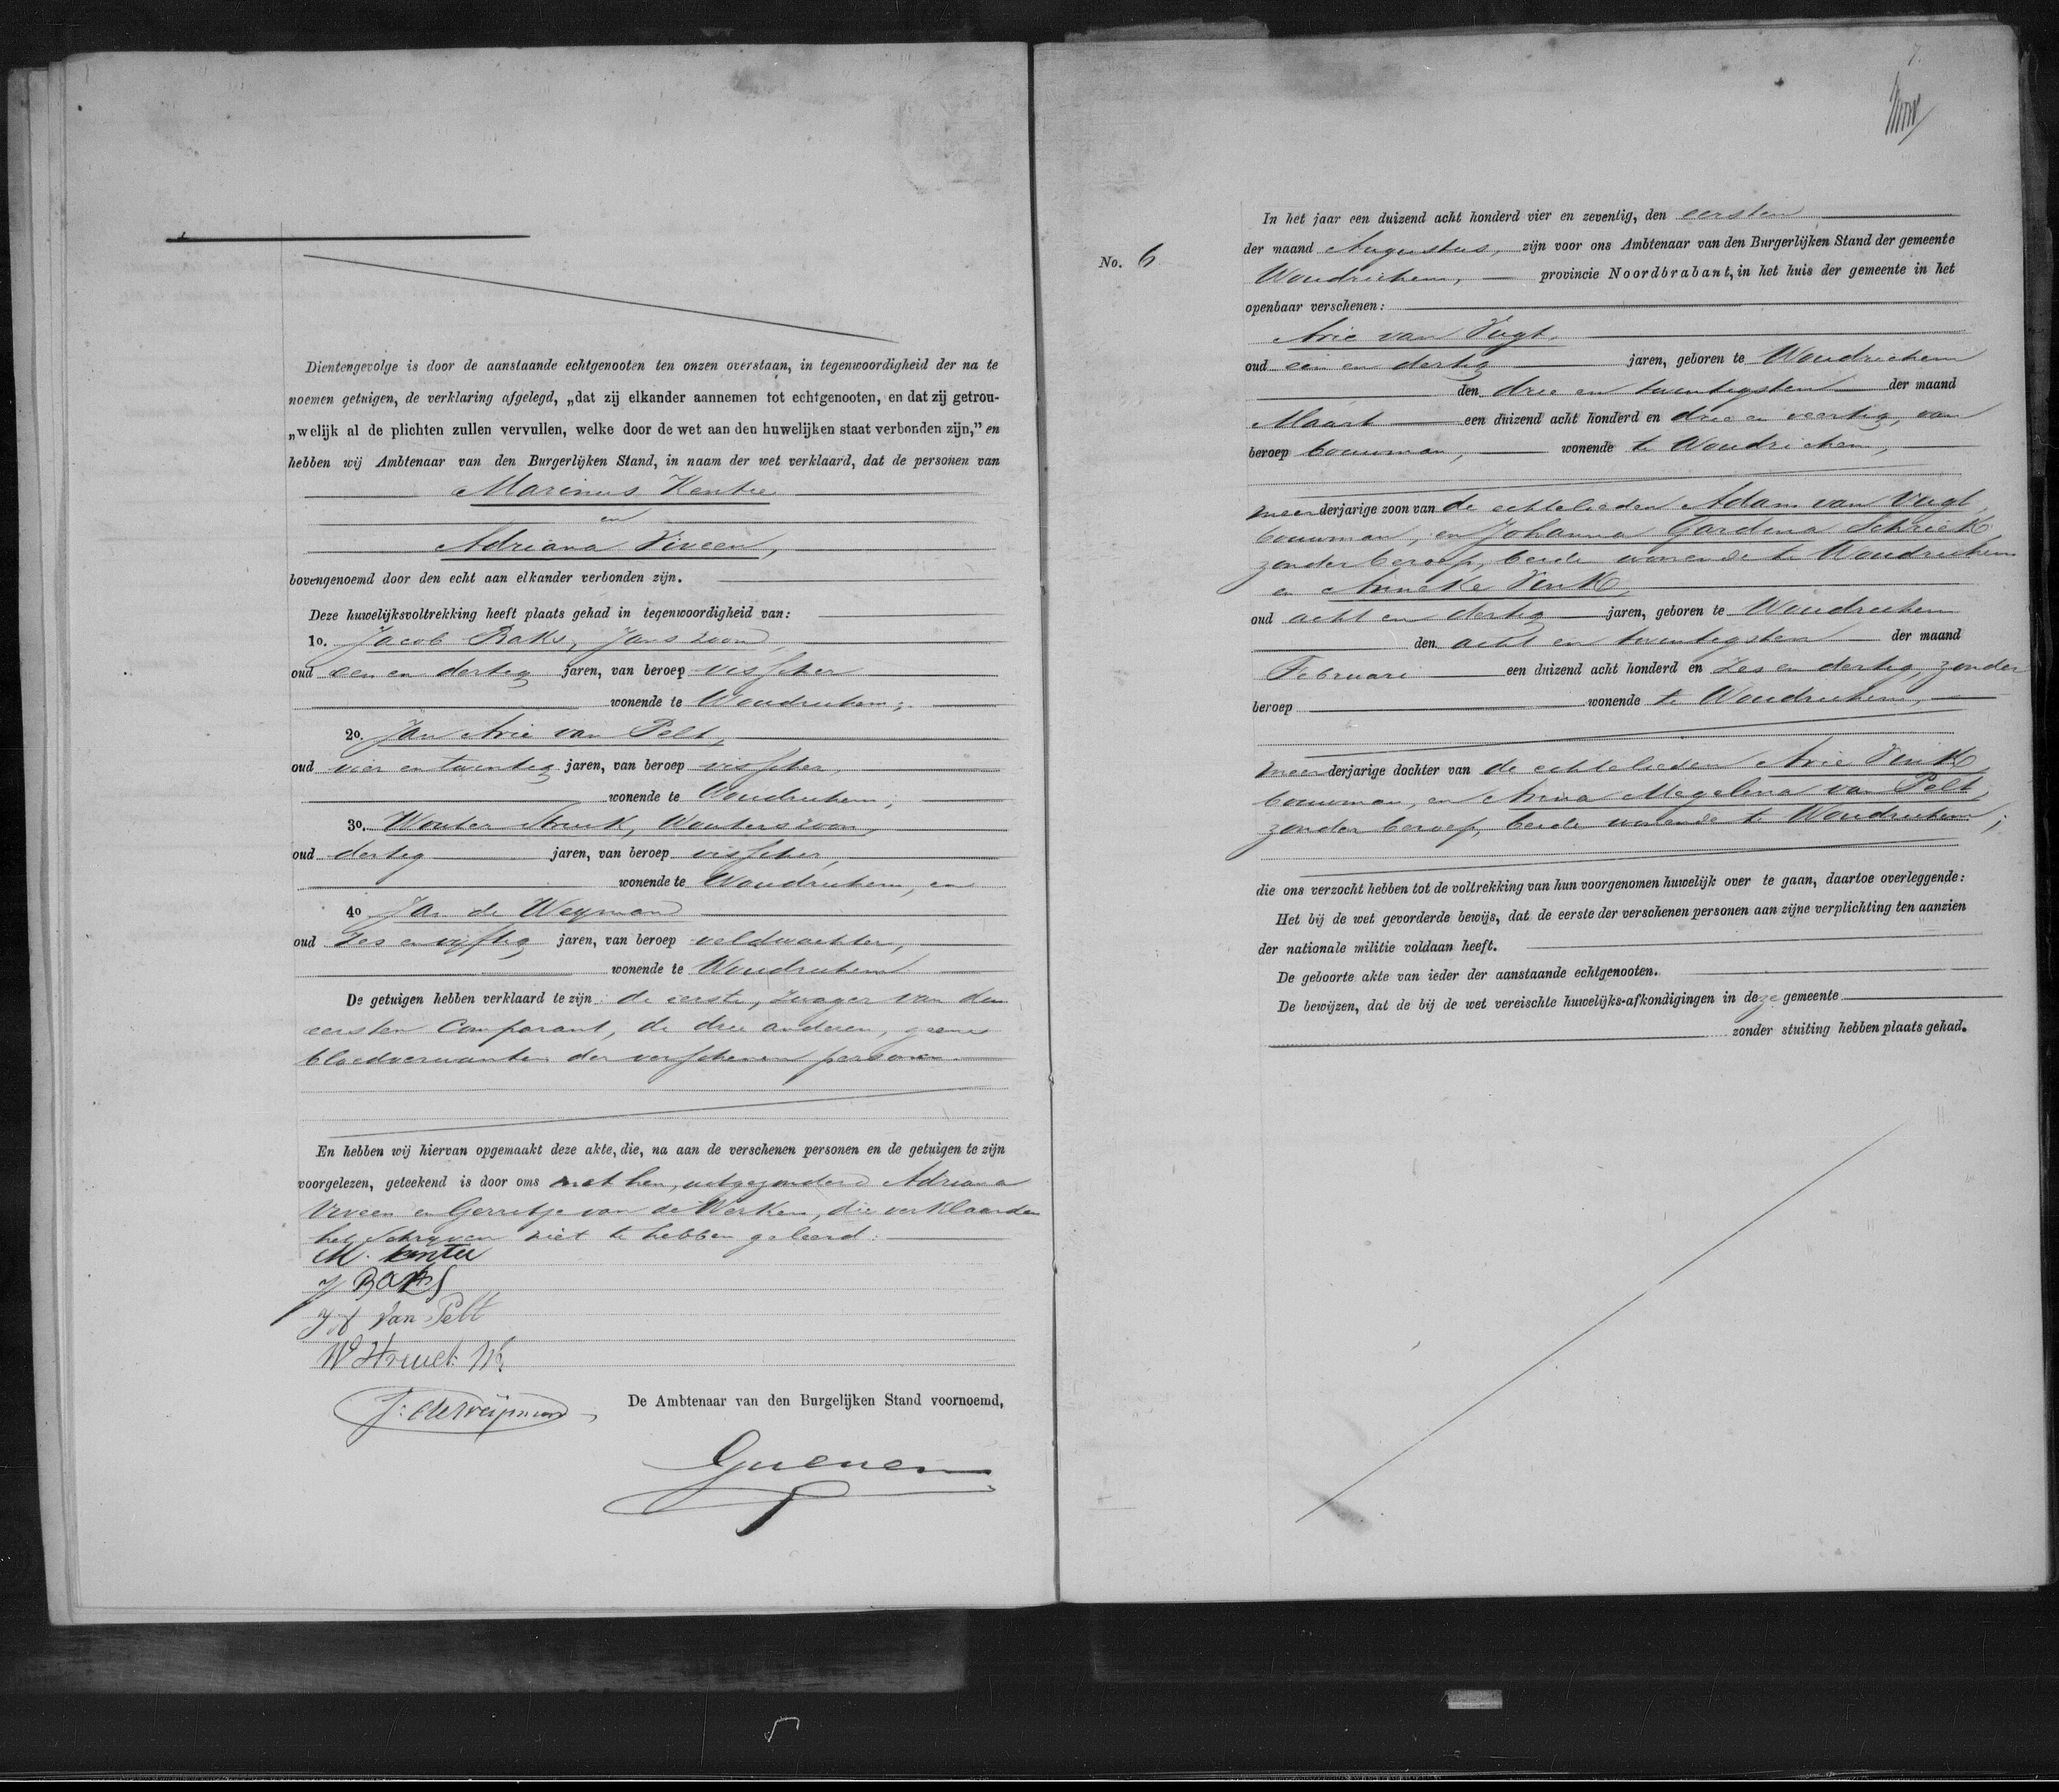 Dientengevolge is door de aanstaande echtgenooten ten onzen overstaan, in tegenwoordigheid der na te
noemen getuigen, de verklaring afgelegd, „dat zij elkander aannemen tot echtgenooten, en dat zij getrou-
„welijk al de plichten zullen vervullen, welke door de wet aan den huwelijken staat verbonden zijn,” en
hebben wij Ambtenaar van den Burgerlijken Stand, in naam der wet verklaard, dat de personen van
Marinus Kentie
en
Adriana Viveen,
bovengenoemd door den echt aan elkander verbonden zijn.
Deze huwelijksvoltrekking heeft plaats gehad in tegenwoordigheid van:
1o. Jacob Raks, Janszoon,
oud een en dertig jaren, van beroep visscher
wonende te Woudrichem;
2o. Jan Arie van Pelt,
oud vier en twintig jaren, van beroep visscher,
wonende te Woudrichem;
3o. Wouter Struik, Wouterszoon,
oud dertig jaren, van beroep visscher,
wonende te Woudrichem, en
4o Jan de Weymand
oud zes en vijftig jaren, van beroep veldwachter,
wonende te Woudrichem
De getuigen hebben verklaard te zijn: de eerste, zwager van den
eersten Comparant, de drie anderen, geene
bloedverwanten der verschenen personen.
En hebben wij hiervan opgemaakt deze akte, die, na aan de verschenen personen en de getuigen te zijn
voorgelezen, geteekend is door ons met hen, uitgezonderd Adriana
Viveen en Gerritje van de Werken, die verklaarden
het Schryven niet te hebben geleerd.
M. kentie
J Raks
J A van Pelt
W Struik Wz
J: de Weijmand
De Ambtenaar van den Burgelijken Stand voornoemd,
No. 6
In het jaar een duizend acht honderd vier en zeventig, den eersten
der maand Augustus, zijn voor ons Ambtenaar van den Burgerlijken Stand der gemeente
Woudrichem, provincie Noordbrabant, in het huis der gemeente in het
openbaar verschenen:
Arie van Vugt,
oud een en dertig jaren, geboren te Woudrichem
den drie en twintigsten der maand
Maart een duizend acht honderd en drie en veertig, van
beroep bouwman, wonende te Woudrichem,
meerderjarige zoon van de echtelieden Adam van Vugt,
bouwman, en Johanna Gardina Schriek
zonder beroep, beide wonende te Woudrichem
en Anneke Vink,
oud acht en dertig jaren, geboren te Woudrichem
den acht en twintigsten der maand
Februari een duizend acht honderd en zes en dertig, zonder
beroep wonende te Woudrichem,
meerderjarige dochter van de echtelieden Arie Vink,
bouwman, en Anna Megelina van Pelt,
zonder beroep, beide wonende te Woudrichem;
die ons verzocht hebben tot de voltrekking van hun voorgenomen huwelijk over te gaan, daartoe overleggende:
Het bij de wet gevorderde bewijs, dat de eerste der verschenen personen aan zijne verplichting ten aanzien
der nationale militie voldaan heeft.
De geboorte akte van ieder der aanstaande echtgenooten.
De bewijzen, dat de bij de wet vereischte huwelijks-afkondigingen in deze gemeente
zonder stuiting hebben plaats gehad.